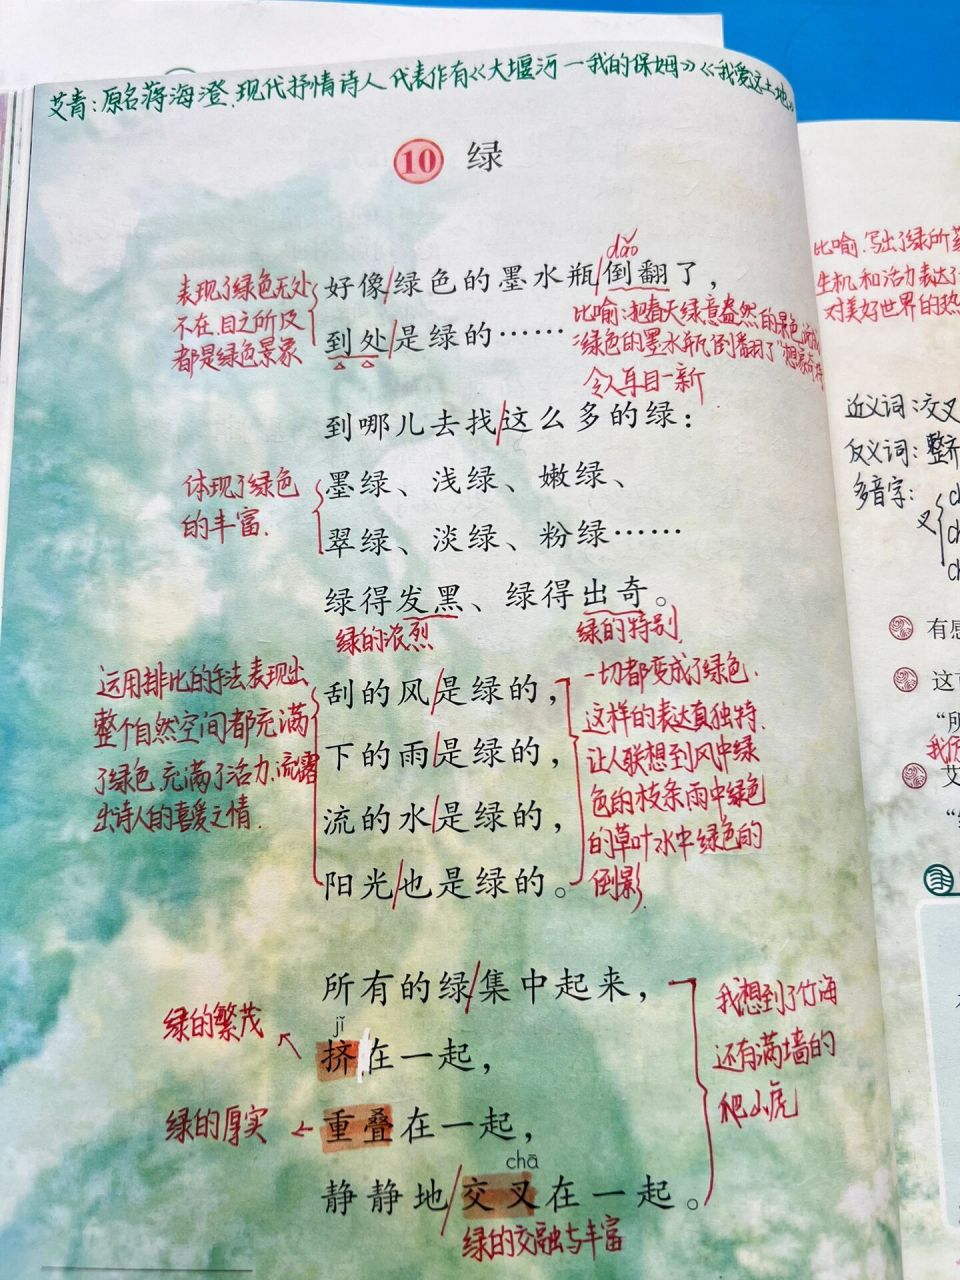 艾青:原名蒋海澄、现代抒情诗人 代表作有《大堰河一我的保姆》《我爱这土地》
10 绿
dǎo
好像/绿色的墨水瓶/倒翻了，
到处/是绿的……
表现了绿色无处
不在.目之所及
都是绿色景象
比喻:把春天绿意盎然的景色
绿色的墨水瓶倒翻了"想象奇特
令人耳目一新
到哪儿去找/这么多的绿：
墨绿、浅绿、嫩绿、
翠绿、淡绿、粉绿……
体现了绿色
的丰富.
绿得发黑、绿得出奇。
绿的浓烈
绿的特别
刮的风/是绿的，
下的雨/是绿的，
流的水/是绿的，
阳光/也是绿的。
运用排比的手法表现出
整个自然空间都充满
了绿色.充满了活力.流露
出诗人的喜爱之情.
一切都变成了绿色.
这样的表达真独特.
让人联想到风中绿
色的枝条雨中绿色
的草叶水中绿色的
倒影
所有的绿/集中起来，
jǐ
挤在一起，
重叠在一起，
chā
静静地/交叉在一起。
绿的繁茂
绿的厚实
绿的交融与丰富
我想到了竹海
还有满墙的
爬山虎
比喻.写出了绿所
生机和活力表达了
对美好世界的热
近义词:交叉
反义词:整齐
多音字:
叉
有感
这
"所
我仿
艾